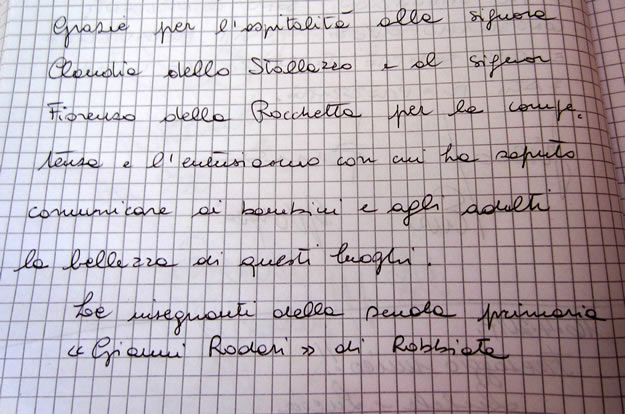 Grazie per l'ospitalità alla signora
Claudia dello Stallazzo e al signor
Fiorenzo della Rocchetta per la compe.
tenza e l'entusiasmo con cui ha saputo
comunicare ai bambini e agli adulti
la bellezza di questi luoghi.
Le insegnanti della scuola primaria
«Gianni Rodari» di Robbiate